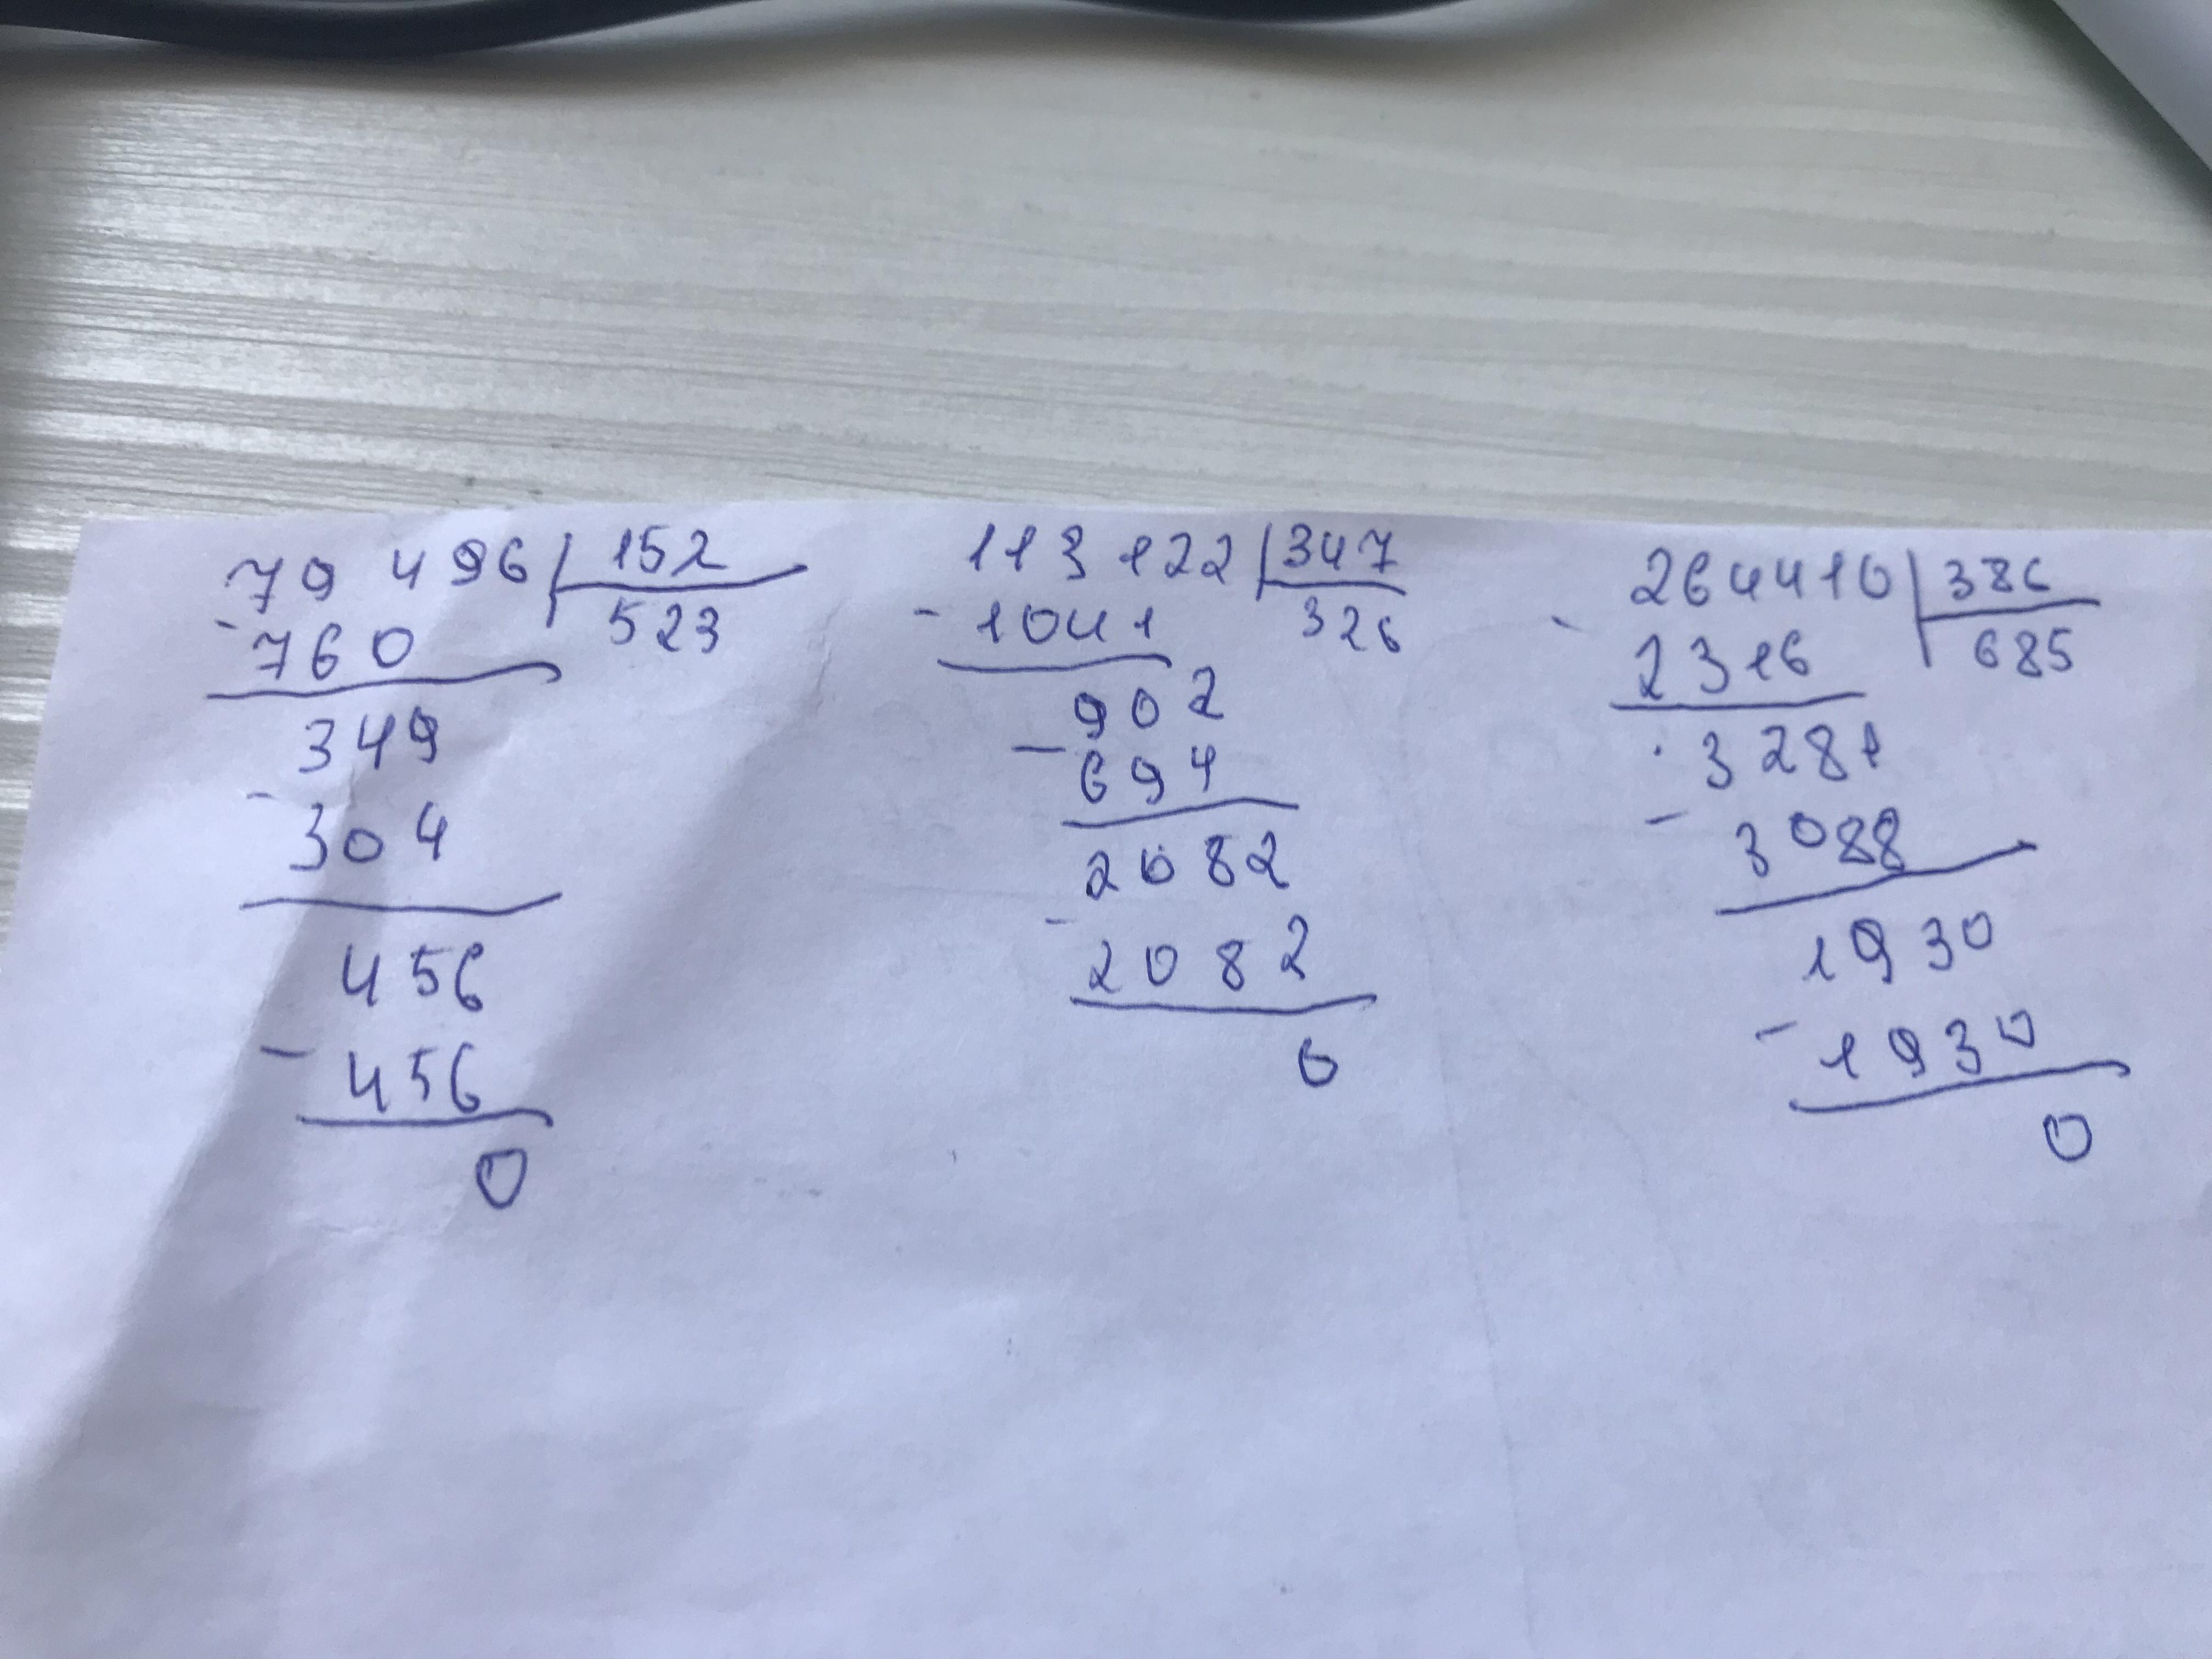 79 496 152
- 760 523
349
- 304
456
- 456
0
113 122 347
- 1041 326
902
- 694
2082
- 2082
0
264410 386
- 2316 685
3281
- 3088
1930
- 1930
0